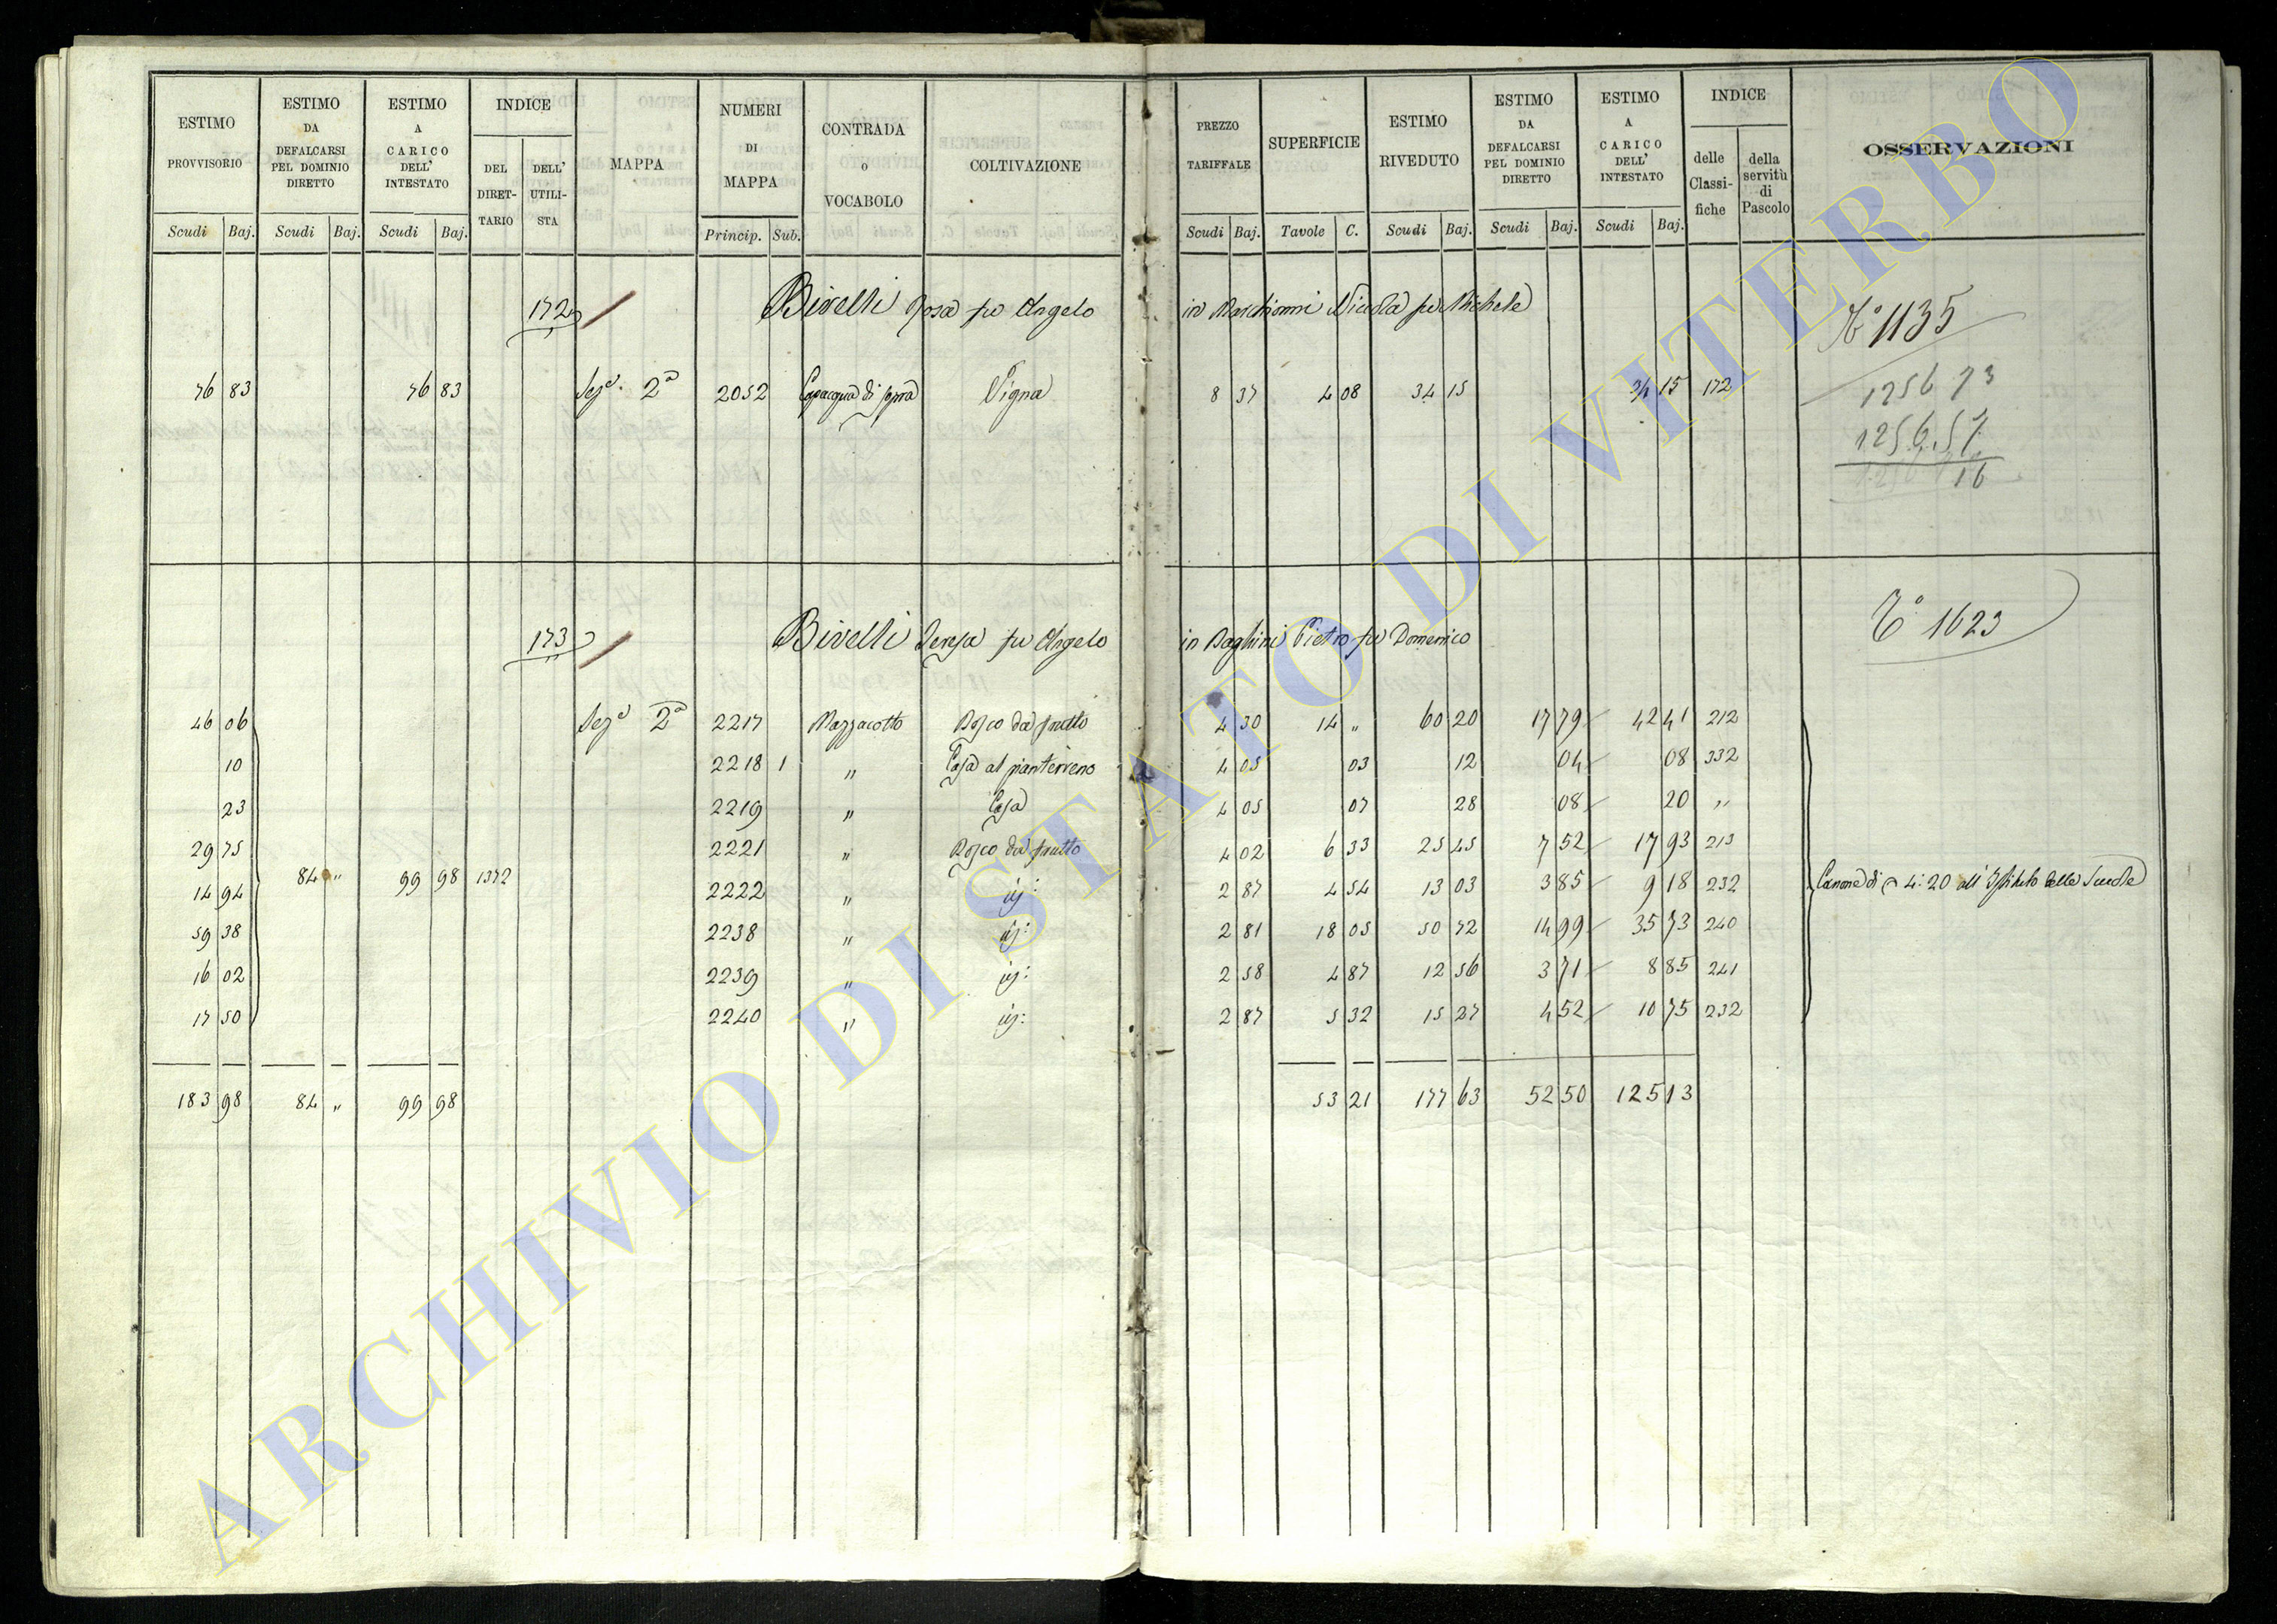 ESTIMO PROVVISORIO Scudi Baj.
ESTIMO DA DEFALCARSI PEL DOMINIO DIRETTO Scudi Baj.
ESTIMO A CARICO DELL' INTESTATO Scudi Baj.
INDICE DEL DIRET- TARIO DELL' UTILI- STA
MAPPA
NUMERI DI MAPPA Princip. Sub.
CONTRADA o VOCABOLO
COLTIVAZIONE
PREZZO TARIFFALE Scudi Baj.
SUPERFICIE Tavole C.
ESTIMO RIVEDUTO Scudi Baj.
ESTIMO DA DEFALCARSI PEL DOMINIO DIRETTO Scudi Baj.
ESTIMO A CARICO DELL' INTESTATO Scudi Baj.
INDICE delle Classi- fiche della servitù di Pascolo
OSSERVAZIONI
172 Bivelli Rosa fu Angelo in Marchionni Nicola fu Michele Tº 1135
76 83 76 83 Sezª 2ª 2052 Capacqua di sopra Vigna 8 37 4 08 34 15 34 15 172
1256 73
1256.57
16
173 Bivelli Teresa fu Angelo in Baghini Pietro fu Domenico Tº 1623
46 06 Sezª 2ª 2217 Mazzacotto Bosco da frutto 4 30 14 „ 60 20 17 79 42 41 212
10 2218 1 „ Casa al pianterreno 4 05 03 12 04 08 332
23 2219 „ Casa 4 05 07 28 08 20 „
29 75 2221 „ Bosco da frutto 4 02 6 33 25 45 7 52 17 93 213
84 „ 99 98 1372 Canone di 4:20 all' Istituto delle Scuole
14 94 2222 „ id: 2 87 4 54 13 03 3 85 9 18 232
59 38 2238 „ id: 2 81 18 05 50 72 14 99 35 73 240
16 02 2239 „ id: 2 58 4 87 12 56 3 71 8 85 241
17 50 2240 „ id: 2 87 5 32 15 27 4 52 10 75 232
183 98 84 „ 99 98 53 21 177 63 52 50 125 13
ARCHIVIO DI STATO DI VITERBO